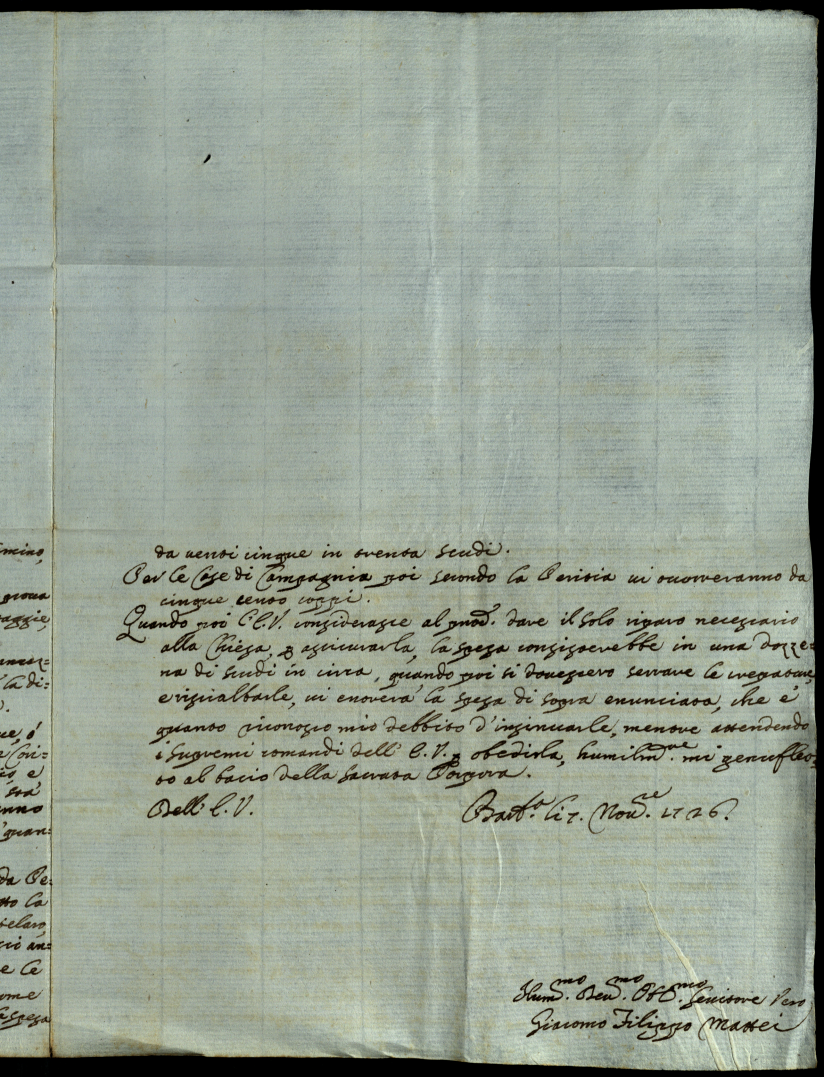 imino,
prova
le di:
e Cori:
sta
anno
quan:
da Pe:
tto la
telaro,
e le
ome
la spesa
da venti cinque in trenta scudi.
Per le Case di Campagnia poi secondo la Perizia vi occorreranno da
cinque cento coppi.
Quando poi l'E.V. considerasse al pnte. dare il solo riparo necessario
alla Chiesa, p assicurarla, la spesa consisterebbe in una dozze-
na di scudi in circa, quando poi si dovessero serrare le crepature,
e risialbarle, vi enoverà la spesa di sopra enunciata, che è
quanto riconosco mio debbito d'insinuarle, mentre attendendo
i supremi comandi dell' E.V. p obedirla, humilmte. mi genuflet-
to al bacio della sacrata Porpora.
Dell' E.V.
Bart.a li 7. Novre. 1726.
Hummo. Devmo. Obbmo. Servitore Vero
Giacomo Filippo Mattei